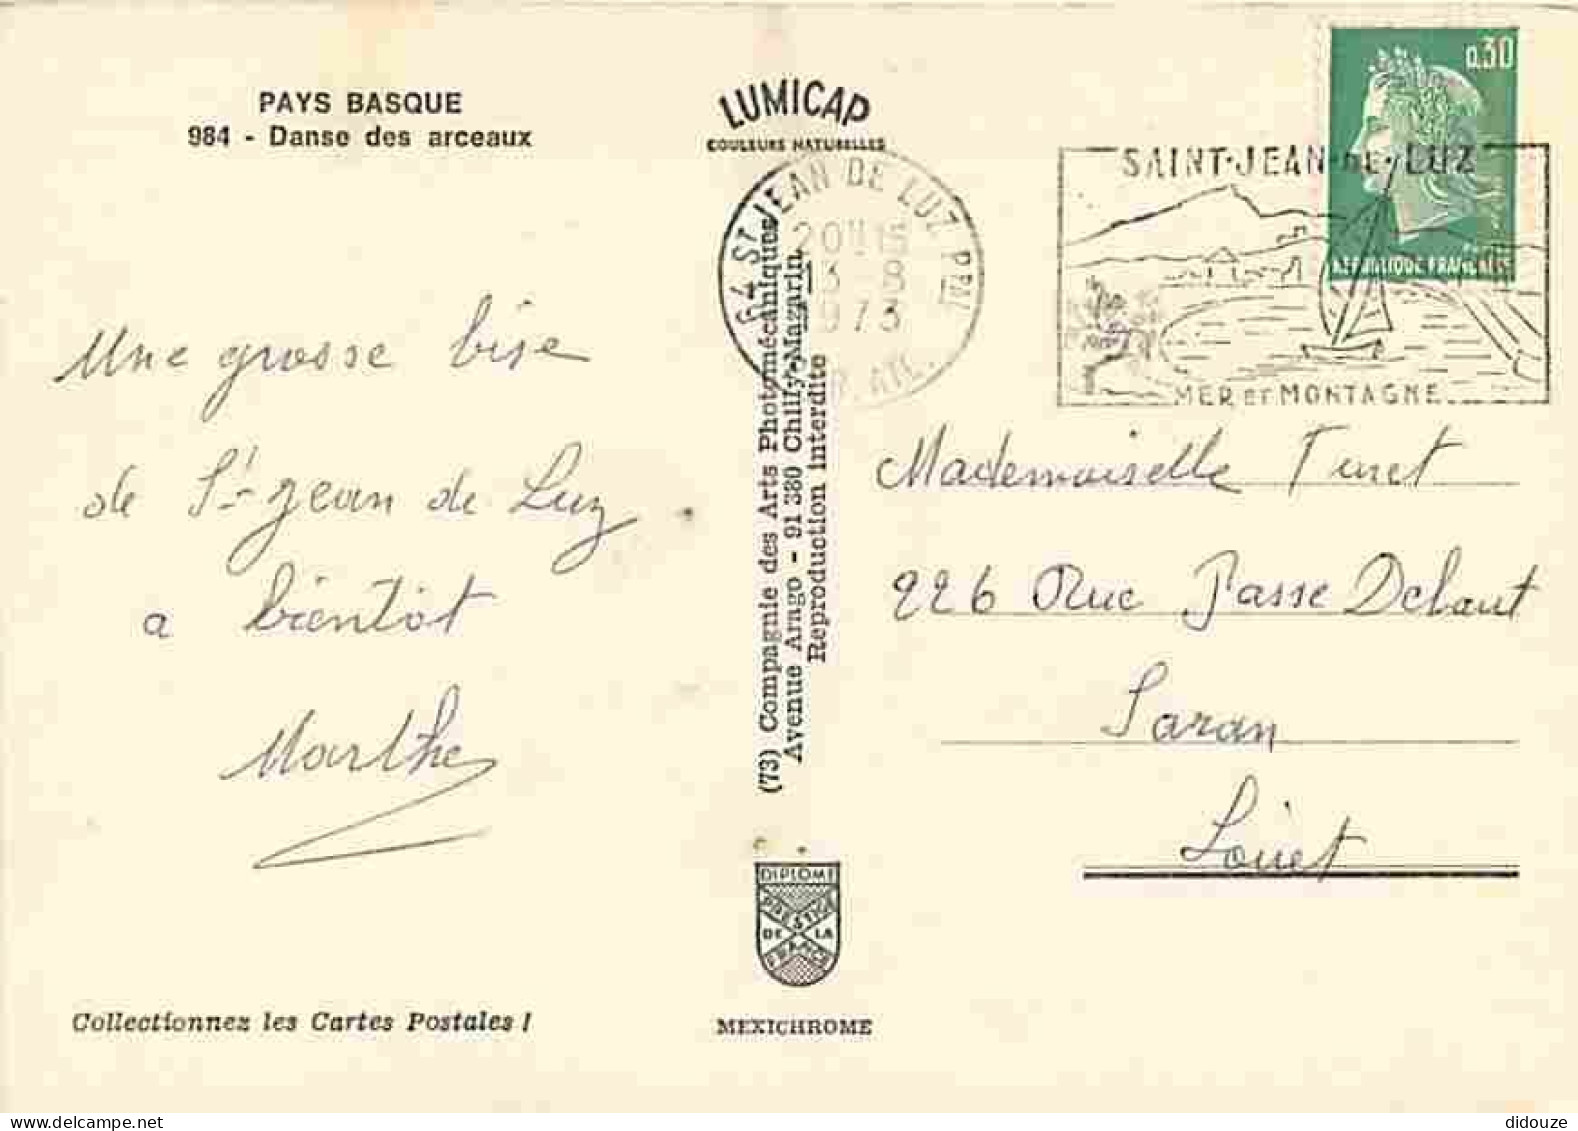 PAYS BASQUE
984 - Danse des arceaux
LUMICAP
COULEURS NATURELLES
0,30
REPUBLIQUE FRANÇAISE
64 ST JEAN DE LUZ PPAL
20H15
3-8
1973
SAINT-JEAN-DE-LUZ
MER ET MONTAGNE
Une grosse bise
de St-Jean de Luz
a bientôt
Marthe
(73) Compagnie des Arts Photomécaniques
Avenue Arago - 91 380 Chilly-Mazarin
Reproduction interdite
Mademoiselle
226 Rue Passe Debout
Saran
Loiret
DIPLOME
PRESTIGE
DE LA
FRANCE
Collectionnez les Cartes Postales !
MEXICHROME
didouze